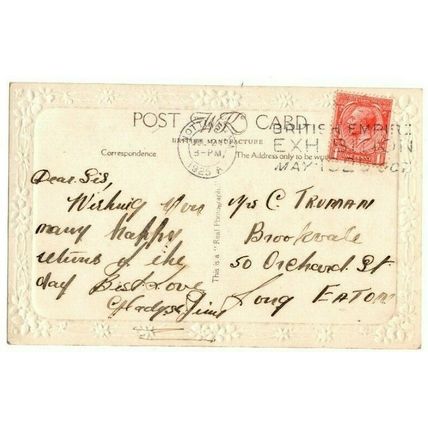 POST CARD
BRITISH MANUFACTURE
Correspondence
The Address only to be
3-PM
1925
BRITISH EMPIRE
EXHIBITION
MAY
This is a "Real Photograph"
Dear Sis,
Wishing you
many happy
returns of the
day Best Love
Gladys & Jim
Mrs C TRUMAN
Brookvale
50 Orchard St
Long EATON